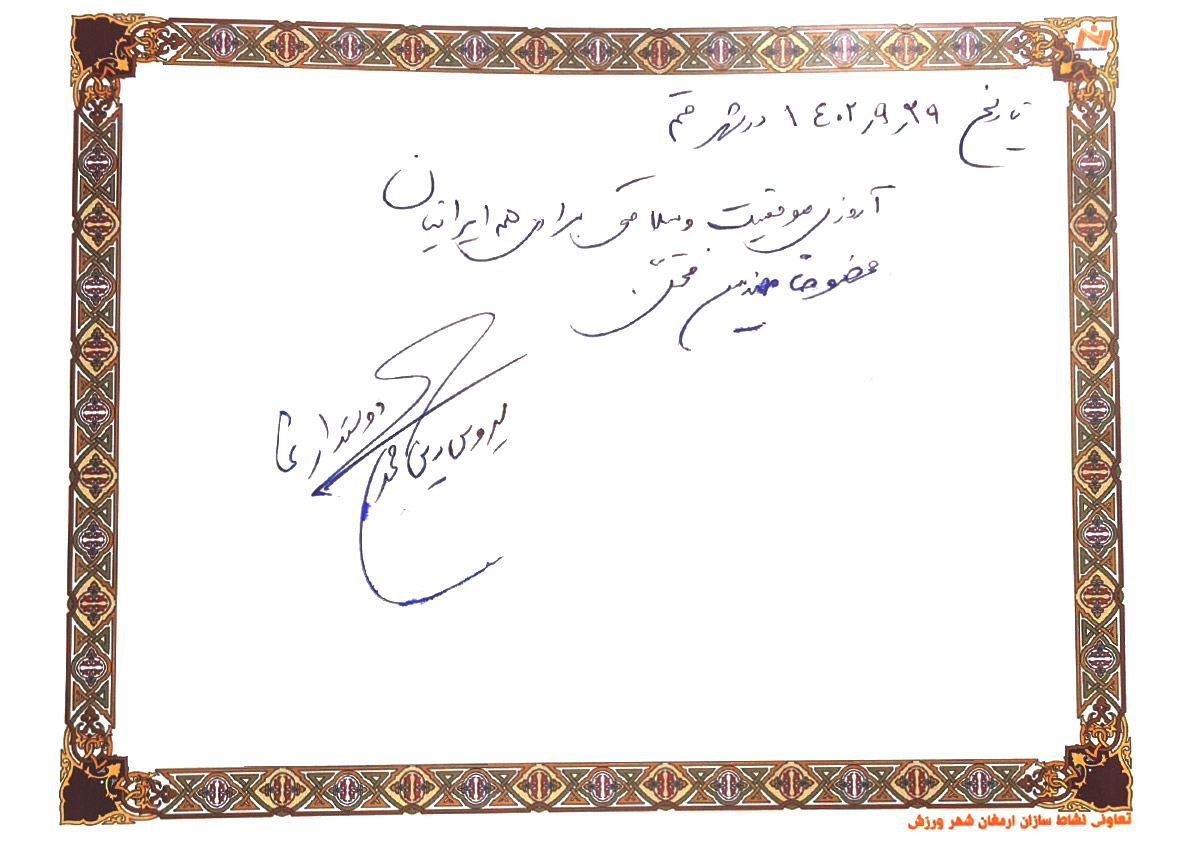 تاریخ ۱۴۰۲٫۹٫۲۹ در شهر قم
آرزوی موفقیت و سلامتی برای همه ایرانیان
مخصوصاً مهندس
دوستدار شما
سیروس دین محمدی
تعاونی نشاط سازان ارمغان شهر ورزش